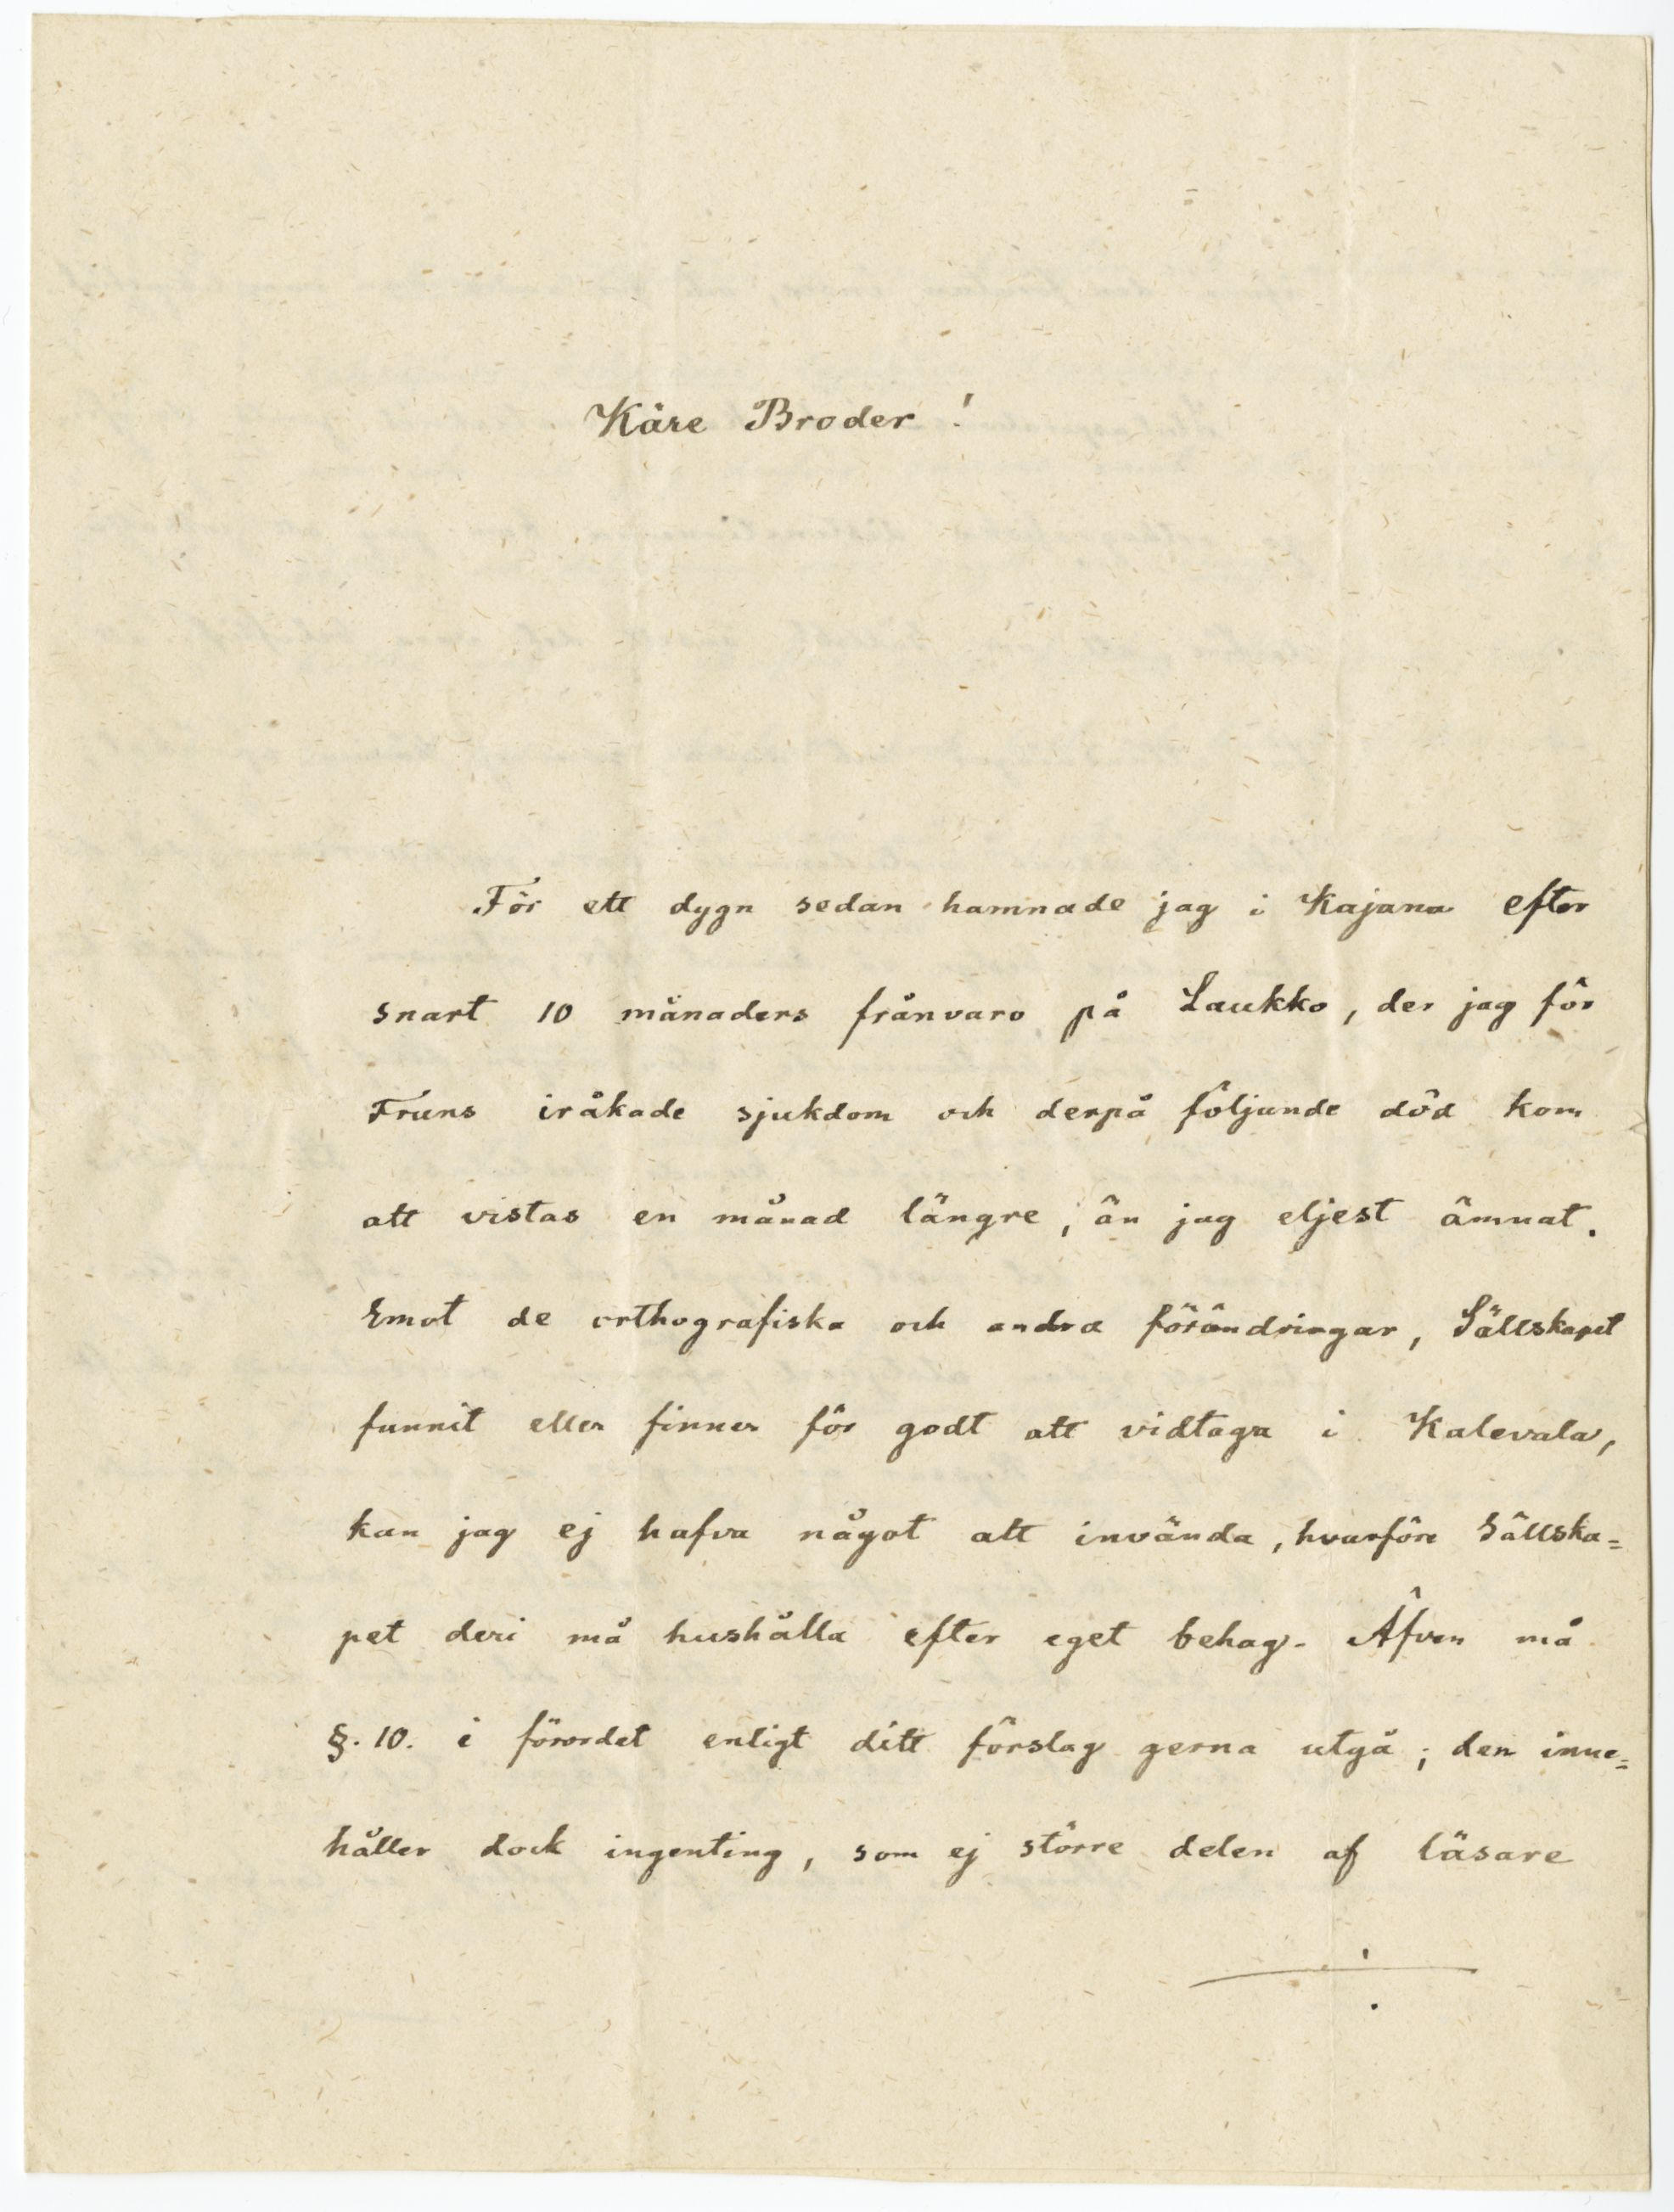 Käre Broder!
För ett dygn sedan hamnade jag i Kajana efter
snart 10 månaders frånvaro på Laukko, der jag för
Fruns iråkade sjukdom och derpå följande död kom
att vistas en månad längre, än jag eljest ämnat.
Emot de orthografiska och andra förändringar, Sällskapet
funnit eller finner för godt att vidtaga i Kalevala,
kan jag ej hafva något att invända, hvarföre Sällska=
pet deri må hushålla efter eget behag. Äfven må
§. 10. i förordet enligt ditt förslag gerna utgå; den inne=
håller dock ingenting, som ej större delen af läsare